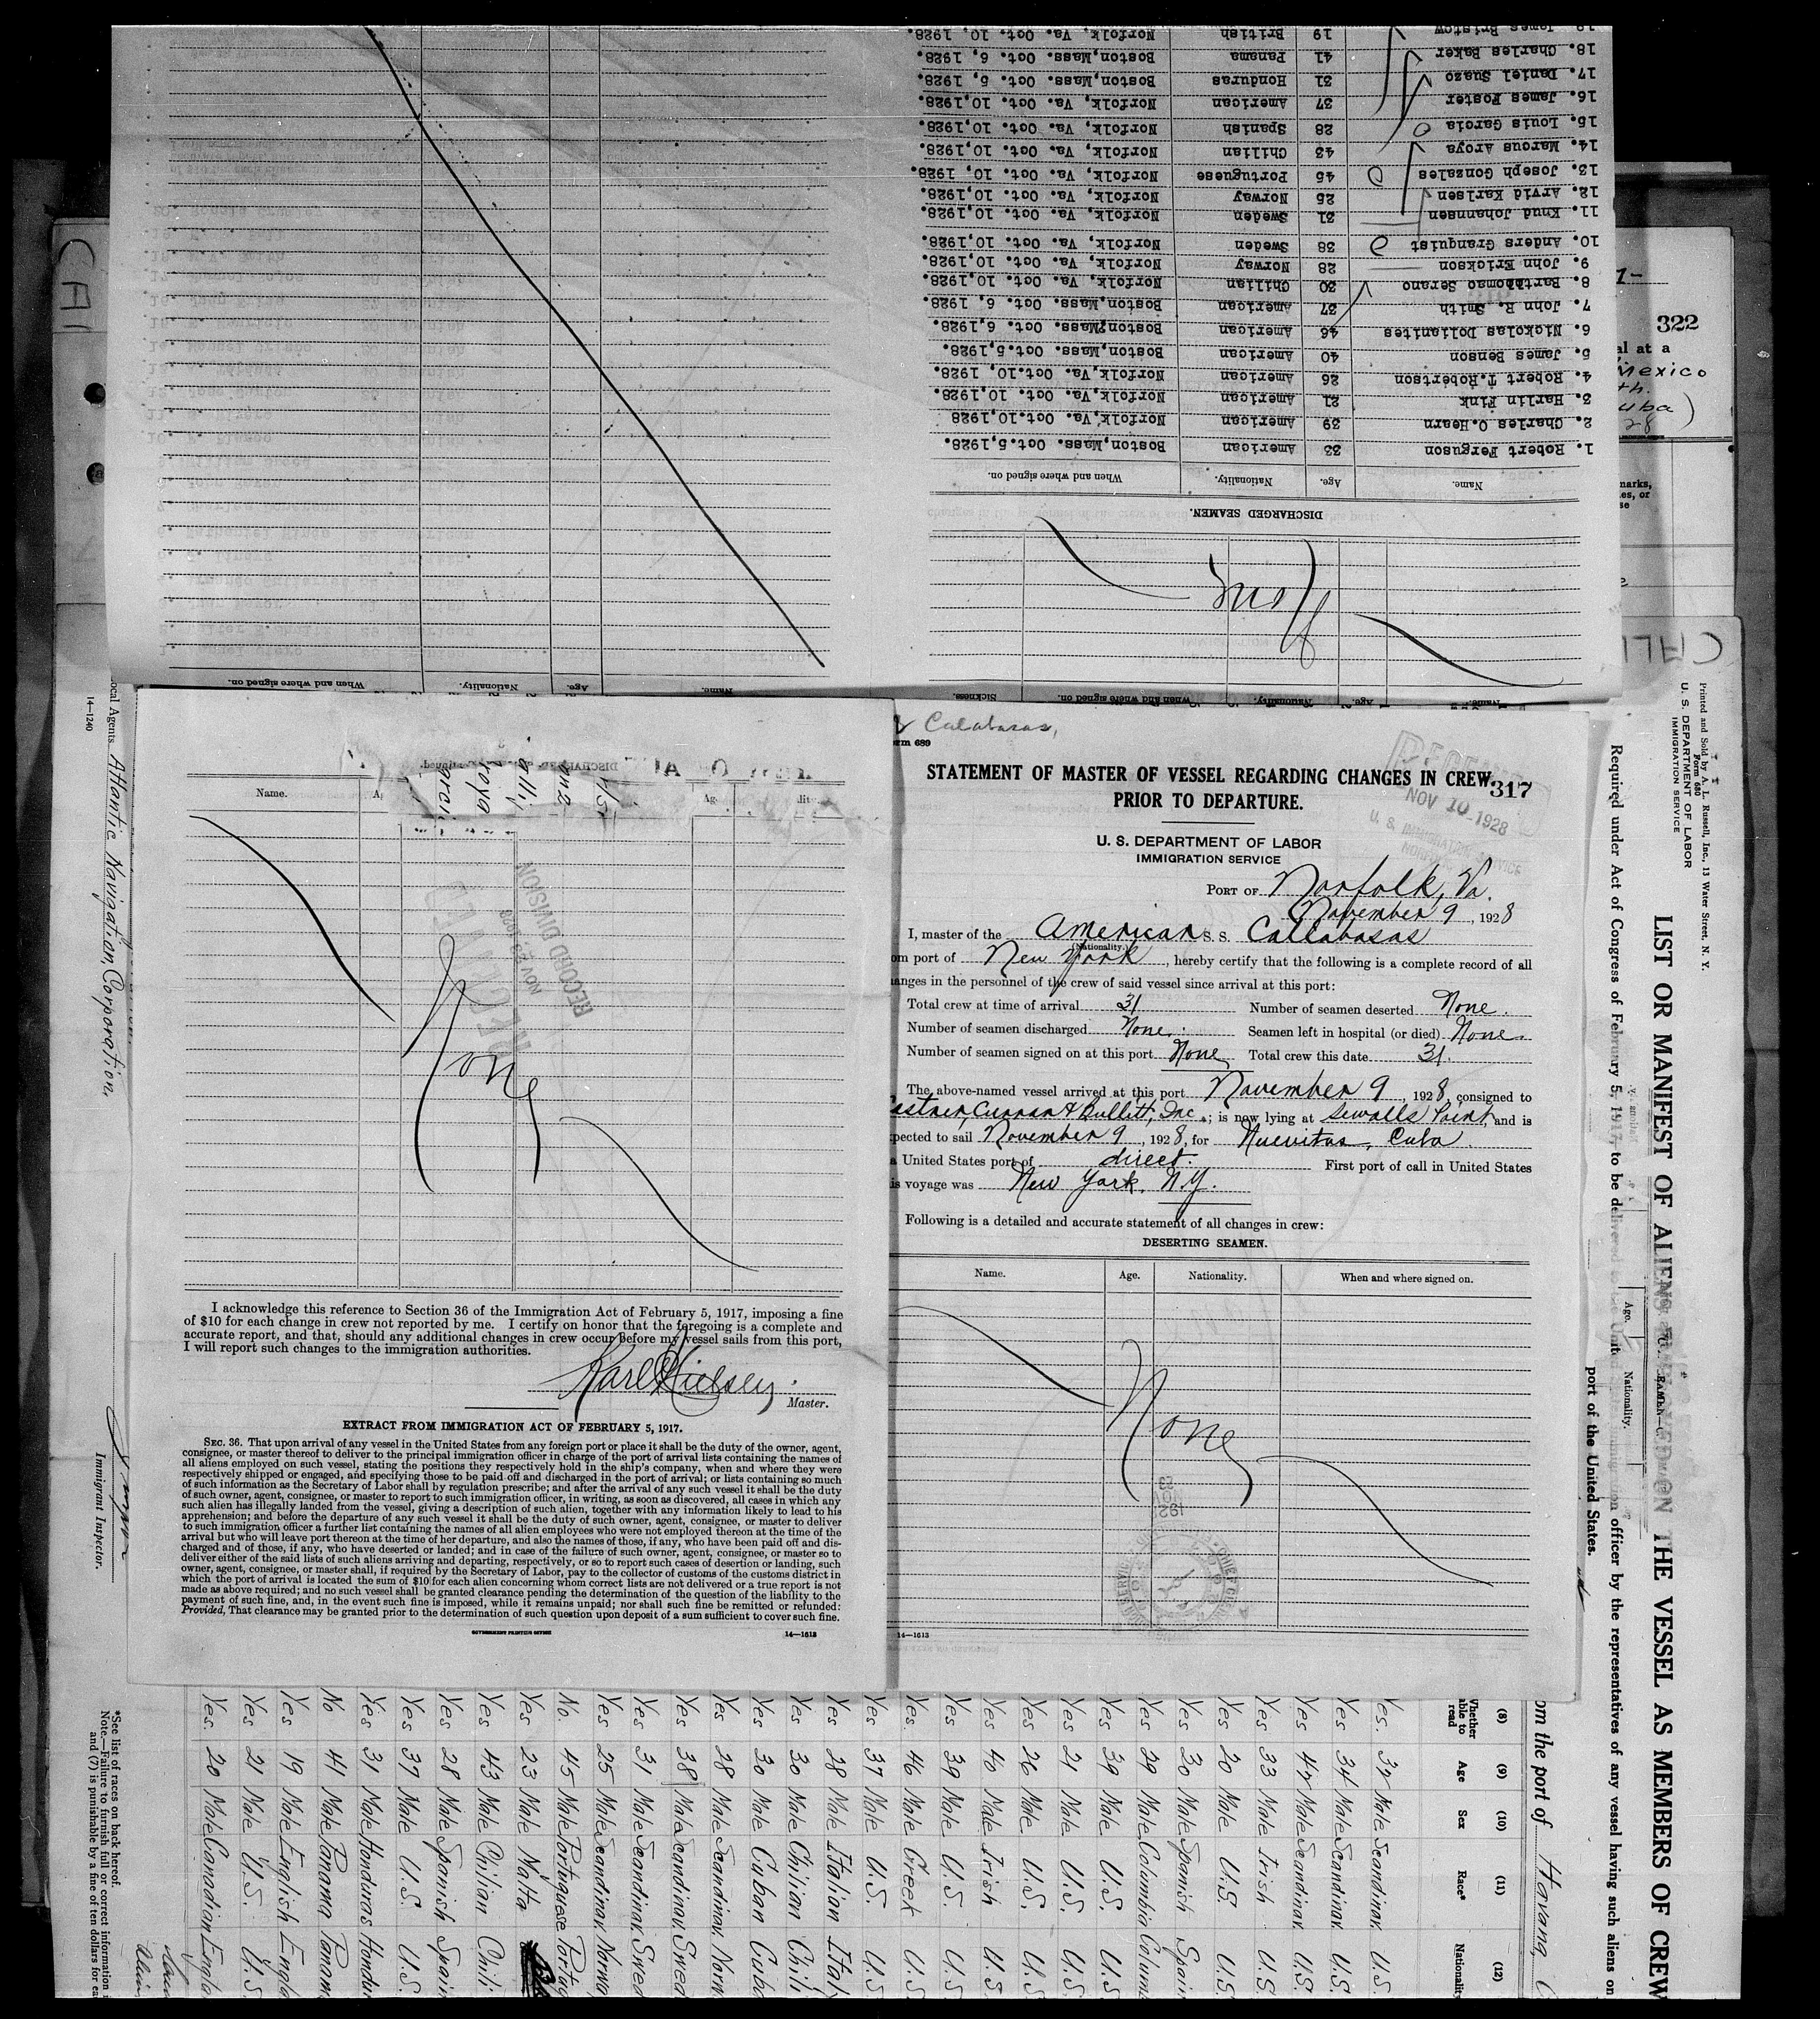 19. James Bristow 19 British Norfolk, Va. Oct. 10, 1928.
18. Charles Baker 41 Panama Boston, Mass. Oct. 6, 1928.
17. Daniel Suazo 31 Honduras Boston, Mass. Oct. 5, 1928.
16. James Foster 37 American Norfolk, Va. Oct. 10, 1928.
15. Louis Garcia 28 Spanish Norfolk, Va. Oct. 10, 1928.
14. Marcus Aroya 43 Chilian Norfolk, Va. Oct. 10, 1928.
13. Joseph Gonzales 45 Portuguese Norfolk, Va. Oct. 10, 1928.
12. Arvid Karlsen 25 Norway Norfolk, Va. Oct. 10, 1928.
11. Knud Johannsen 31 Sweden Norfolk, Va. Oct. 10, 1928.
10. Anders Granquist 38 Sweden Norfolk, Va. Oct. 10, 1928.
9. John Erickson 28 Norway Norfolk, Va. Oct. 10, 1928.
8. Serano 30 Chilian Norfolk, Va. Oct. 10, 1928.
7. John R. Smith 37 American Boston, Mass. Oct. 6, 1928.
6. Nickolas Dolianites 46 American Boston, Mass. Oct. 6, 1928.
5. James Benson 40 American Boston, Mass. Oct. 5, 1928.
4. Robert T. Robertson 26 American Norfolk, Va. Oct. 10, 1928.
3. Harlin Fink 21 American Norfolk, Va. Oct. 10, 1928.
2. Charles O. Hearn 39 American Norfolk, Va. Oct. 10, 1928
1. Robert Ferguson 33 American Boston, Mass. Oct. 5, 1928.
Name. Age. Nationality. When and where signed on.
DISCHARGED SEAMEN.
None
Name. Age. Nationality. When and where signed on. Sickness.
Name. Age. Nationality. When and where signed on.
322
al at a
Mexico
uba)
28
marks,
es, or
se
CALI
Name.
None
RECEIVED
NOV 23 1928
RECORD DIVISION
I acknowledge this reference to Section 36 of the Immigration Act of February 5, 1917, imposing a fine
of $10 for each change in crew not reported by me. I certify on honor that the foregoing is a complete and
accurate report, and that, should any additional changes in crew occur before my vessel sails from this port,
I will report such changes to the immigration authorities.
Karl Nielsen
Master.
EXTRACT FROM IMMIGRATION ACT OF FEBRUARY 5, 1917.
SEC. 36. That upon arrival of any vessel in the United States from any foreign port or place it shall be the duty of the owner, agent,
consignee, or master thereof to deliver to the principal immigration officer in charge of the port of arrival lists containing the names of
all aliens employed on such vessel, stating the positions they respectively hold in the ship's company, when and where they were
respectively shipped or engaged, and specifying those to be paid off and discharged in the port of arrival; or lists containing so much
of such information as the Secretary of Labor shall by regulation prescribe; and after the arrival of any such vessel it shall be the duty
of such owner, agent, consignee, or master to report to such immigration officer, in writing, as soon as discovered, all cases in which any
such alien has illegally landed from the vessel, giving a description of such alien, together with any information likely to lead to his
apprehension; and before the departure of any such vessel it shall be the duty of such owner, agent, consignee, or master to deliver
to such immigration officer a further list containing the names of all alien employees who were not employed thereon at the time of the
arrival but who will leave port thereon at the time of her departure, and also the names of those, if any, who have been paid off and dis-
charged and of those, if any, who have deserted or landed; and in case of the failure of such owner, agent, consignee, or master so to
deliver either of the said lists of such aliens arriving and departing, respectively, or so to report such cases of desertion or landing, such
owner, agent, consignee, or master, shall, if required by the Secretary of Labor, pay to the collector of customs of the customs district in
which the port of arrival is located the sum of $10 for each alien concerning whom correct lists are not delivered or a true report is not
made as above required; and no such vessel shall be granted clearance pending the determination of the question of the liability to the
payment of such fine, and, in the event such fine is imposed, while it remains unpaid; nor shall such fine be remitted or refunded:
Provided, That clearance may be granted prior to the determination of such question upon deposit of a sum sufficient to cover such fine.
GOVERNMENT PRINTING OFFICE 14—1613
Calabasas,
rm 689
STATEMENT OF MASTER OF VESSEL REGARDING CHANGES IN CREW
PRIOR TO DEPARTURE.
317
NOV 10 1928
U. S. IMMIGRATION SERVICE
U. S. DEPARTMENT OF LABOR
IMMIGRATION SERVICE
PORT OF Norfolk, Va.
November 9, 1928
I, master of the American S. S. Callabasas
(Nationality.)
om port of New York, hereby certify that the following is a complete record of all
anges in the personnel of the crew of said vessel since arrival at this port:
Total crew at time of arrival 31 Number of seamen deserted None.
Number of seamen discharged None. Seamen left in hospital (or died) None.
Number of seamen signed on at this port None Total crew this date 31.
The above-named vessel arrived at this port November 9, 1928, consigned to
astner, Curran & Bullitt, Inc.; is now lying at Sewalls Point, and is
pected to sail November 9, 1928, for Nuevitas, Cuba.
a United States port of direct. First port of call in United States
is voyage was New York, N.Y.
Following is a detailed and accurate statement of all changes in crew:
DESERTING SEAMEN.
Name. Age. Nationality. When and where signed on.
None
14—1613
Printed and Sold by A. L. Russell, Inc., 13 Water Street, N. Y.
Form 680
U. S. DEPARTMENT OF LABOR
IMMIGRATION SERVICE
LIST OR MANIFEST OF ALIENS EMPLOYED ON THE VESSEL AS MEMBERS OF CREW
Required under Act of Congress of February 5, 1917, to be delivered to the United States immigration officer by the representatives of any vessel having such aliens on
port of the United States.
om the port of Havana, C
(8) (9) (10) (11) (12)
Whether able to read Age Sex Race* Nationality
Yes. 34 Male Scandinav. U.S.
Yes 34 Male Scandinav. U.S.
Yes 47 Male Scandinav. U.S.
Yes 33 Male Irish U.S.
Yes 20 Male U.S. U.S.
Yes 30 Male Spanish Spain
Yes 29 Male Columbia Colum
Yes 39 Male U.S. U.S.
Yes 21 Male U.S. U.S.
Yes 26 Male U.S. U.S.
Yes 40 Male Irish U.S.
Yes 39 Male U.S. U.S.
Yes. 46 Male Greek U.S.
Yes 37 Male U.S. U.S
Yes 28 Male Italian Italy
Yes 30 Male Chilian Chili
Yes 30 Male Cuban Cuba
Yes 28 Male Scandinav. Norw
Yes 38 Male Scandinav. Swed
Yes 31 Male Scandinav. Swed
Yes 25 Male Scandinav. Norwa
No. 45 Male Portiguese Portg
Yes 23 Male Malta
Yes 43 Male Chilian Chili
Yes 28 Male Spanish Spain
Yes 37 Male U.S. U.S.
Yes 31 Male Honduras Hondur
No 41 Male Panama Panam
Yes 19 Male English Engla
Yes 21 Male U.S. U.S.
Yes. 20 Male Canadian Engla
*See list of races on back hereof.
Note.—Failure to furnish full or correct information i
and (7) is punishable by a fine of ten dollars for ea
ocal Agents Atlantic Navigation Corporation,
14—1240
Immigrant Inspector.